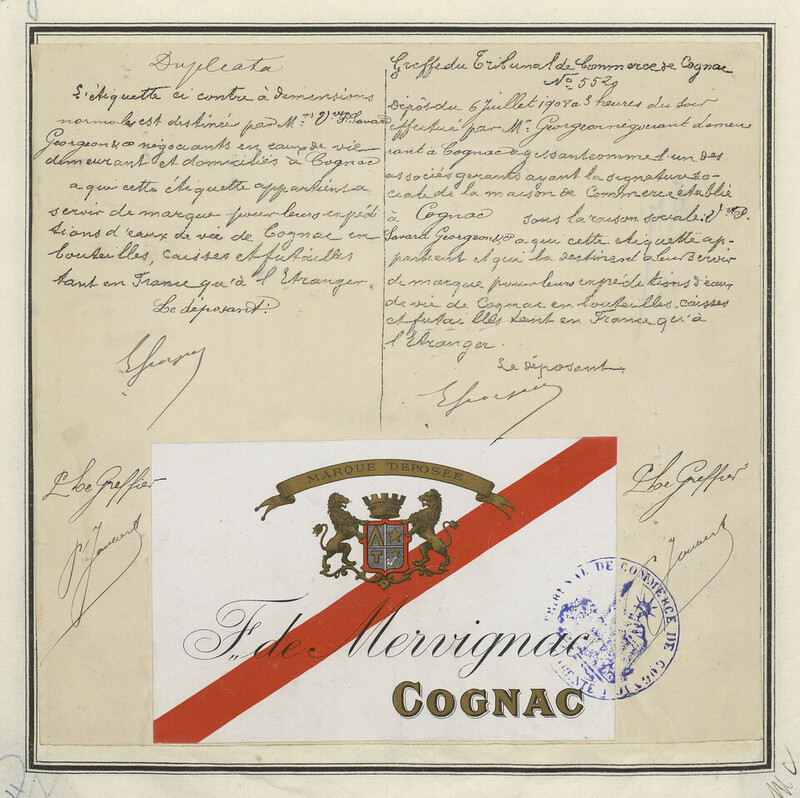 Duplicata
L'étiquette ci contre à dimensions
normales est destinée par Mrs Vve P. Savard
Georgeon & Co négociants en eaux de vie
demeurant et domiciliés à Cognac
a qui cette étiquette appartient a
servir de marque pour leurs expédi
tions d'eaux de vie de Cognac en
bouteilles, caisses et futailles
tant en France qu'à l'Etranger.
Le déposant.
Greffe du Tribunal de Commerce de Cognac
No 552
Dépôt du 6 Juillet 1908 à 3 heures du soir
effectué par Mr Georgeon négociant demeu
rant à Cognac agissant comme l'un des
associés gerants ayant la signature so-
ciale de la maison de Commerce établie
à Cognac sous la raison sociale: Vve P.
Savard Georgeon & Co a qui cette étiquette ap-
partient et qui la destinent a leur servir
de marque pour leurs expéditions d'eaux
de vie de Cognac en bouteilles, caisses
et futailles tant en France qu'à
l'Etranger.
Le déposant.
P. Le Greffier
P. Le Greffier
MARQUE DEPOSÉE
F. de Mervignac
COGNAC
TRIBUNAL DE COMMERCE DE COGNAC